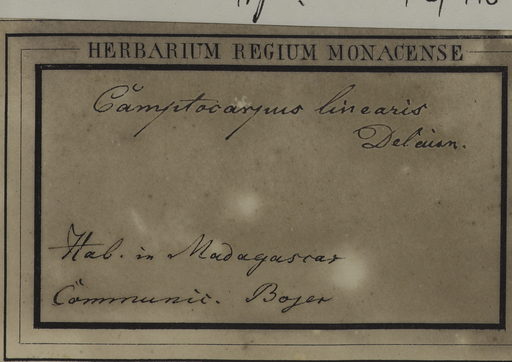 HERBARIUM REGIUM MONACENSE
Camptocarpus linearis
Decaisn.
Hab. in Madagascar
Communic. Bojer